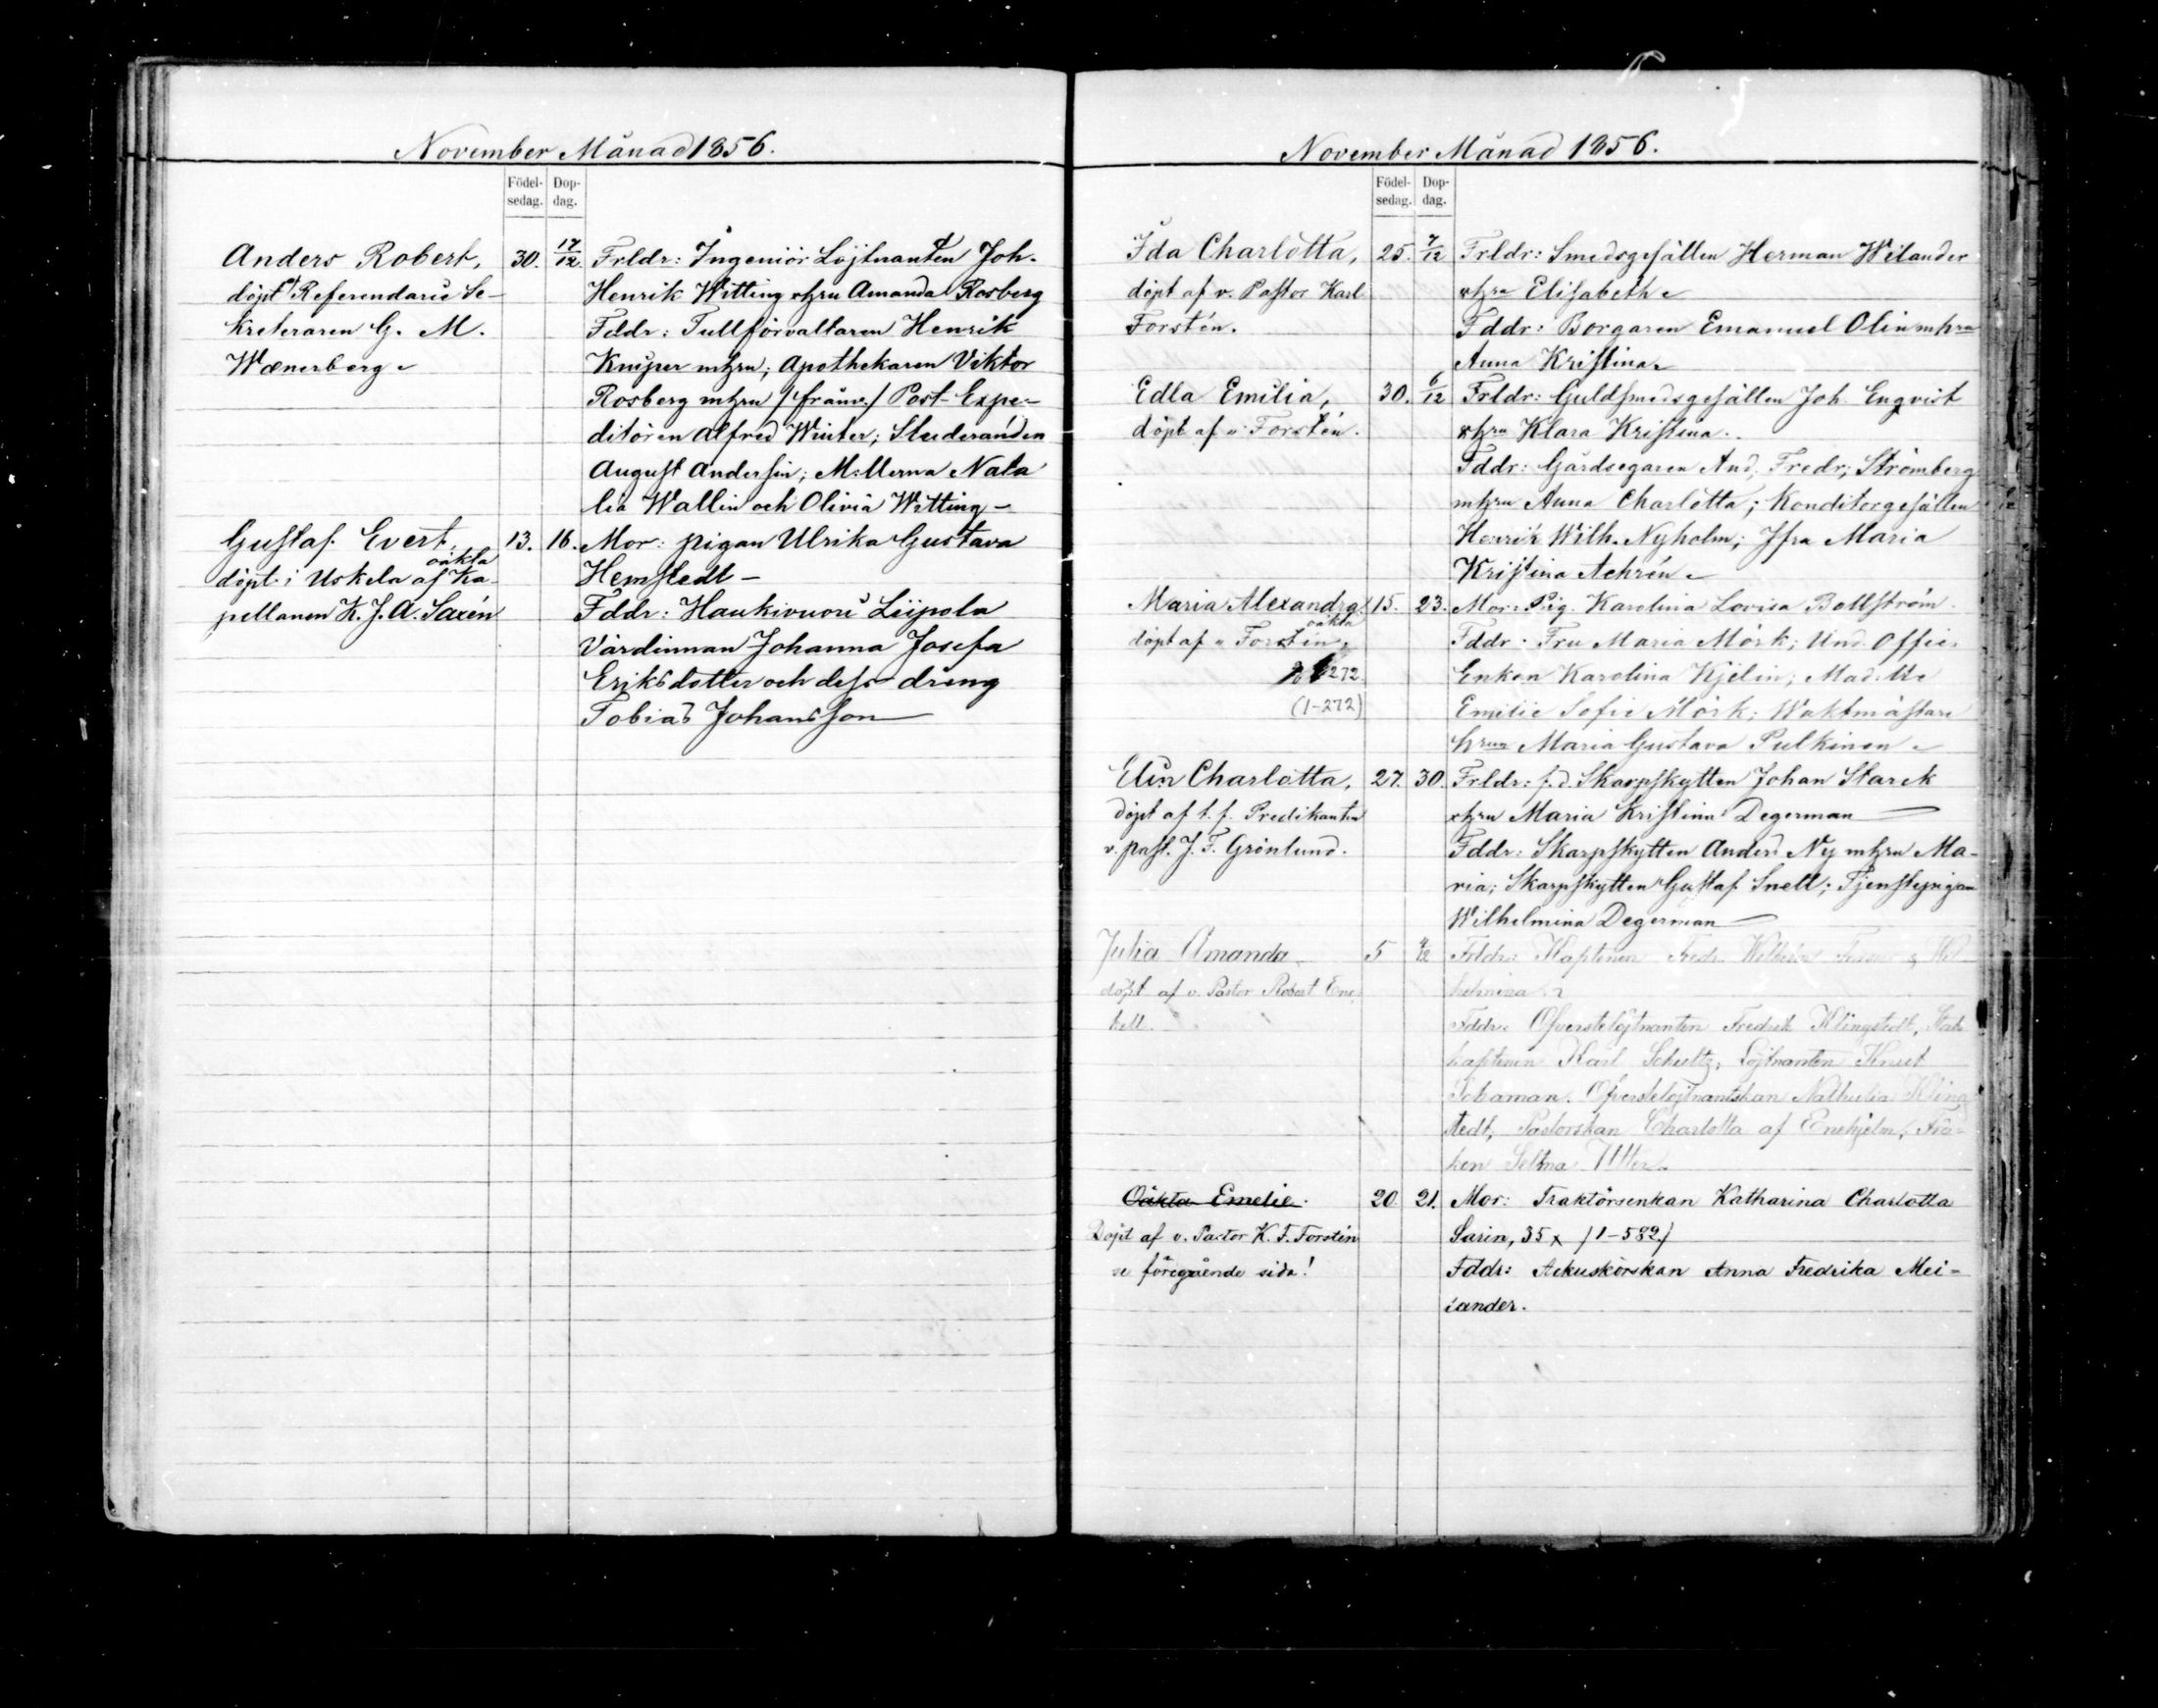 November Månad 1856.
Födel-
sedag.
Dop-
dag.
Anders Robert,
döpt af Referendarie Se-
kreteraren G. M.
Wænerberg
30.
17/12.
Frldr: Ingeniör Löjtnanten Joh.
Henrik Witting o hru Amanda Rosberg
Fddr: Tullförvaltaren Henrik
Knïper m hru; Apothekaren Viktor
Rosberg m hru /frånv./ Post-Expe-
ditören Alfred Winter; Studeranden
August Andersin; M:llerna Nata
lia Wallin och Olivia Witting –
Gustaf Evert,
oäkta
döpt i Uskela af Ka-
pellanen K. J. A. Saxén
13.
16.
Mor: pigan Ulrika Gustava
Hemstedt –
Fddr: Haukivuori Liipola
Värdinnan Johanna Josefa
Eriksdotter och dess dräng
Tobias Johansson
November Månad 1856.
Födel-
sedag.
Dop-
dag.
Ida Charlotta,
döpt af v. Pastor Karl
Forstén.
25.
7/12
Frldr: Smedsgesällen Herman Wilander
o hru Elisabeth
Fddr: Borgaren Emanuel Olin m hru
Anna Kristina
Edla Emilia,
döpt af " Forstén.
30.
6/12
Frldr: Guldsmedsgesällen Joh. Enqvist
o hru Klara Kristina.
Fddr: Gårdsegaren And. Fredr. Strömberg
m hru Anna Charlotta; Konditorgesällen
Henrik Wilh. Nyholm; Jfru Maria
Kristina Achrén
Maria Alexandra
oäkta
döpt af " Forstén
272
(1-272)
15.
23.
Mor: Pig. Karolina Lovisa Bollström.
Fddr: Fru Maria Mörk; Und. Offic.
Enkan Karolina Kjelin; Mad.lle
Emilie Sofie Mörk; Waktmästare
hrun Maria Gustava Pulkinen
Elin Charlotta,
döpt af t. f. Predikanten
v. past. J. F. Grönlund.
27.
30.
Frldr: f. d. Skarpskytten Johan Starck
o hru Maria Kristina Degerman
Fddr: Skarpskytten Anders Ny m hru Ma-
ria; Skarpskytten Gustaf Snell; Tjenstepigan
Wilhelmina Degerman
Julia Amanda
döpt af v. Pastor Robert Ene-
hell.
5
4/12
Frldr: Kaptenen Fredr. & Wil
helmina
Fddr: Öfverstelöjtnanten Fredrik Klingstedt, Stabs
kaptenen Karl Schultz, Löjtnanten Knut
Schauman. Öfverstelöjtnantskan Nathalia Kling
stedt, Pastorskan Charlotta af Enehjelm, Frö-
ken Selma
Oäkta Emelie.
Döpt af v. Pastor K. F. Forstén
se föregående sida!
20.
21.
Mor: Traktörsenkan Katharina Charlotta
Sarin, 35 x /1-582/
Fddr: Ackuskörskan Anna Fredrika Mei-
lander.